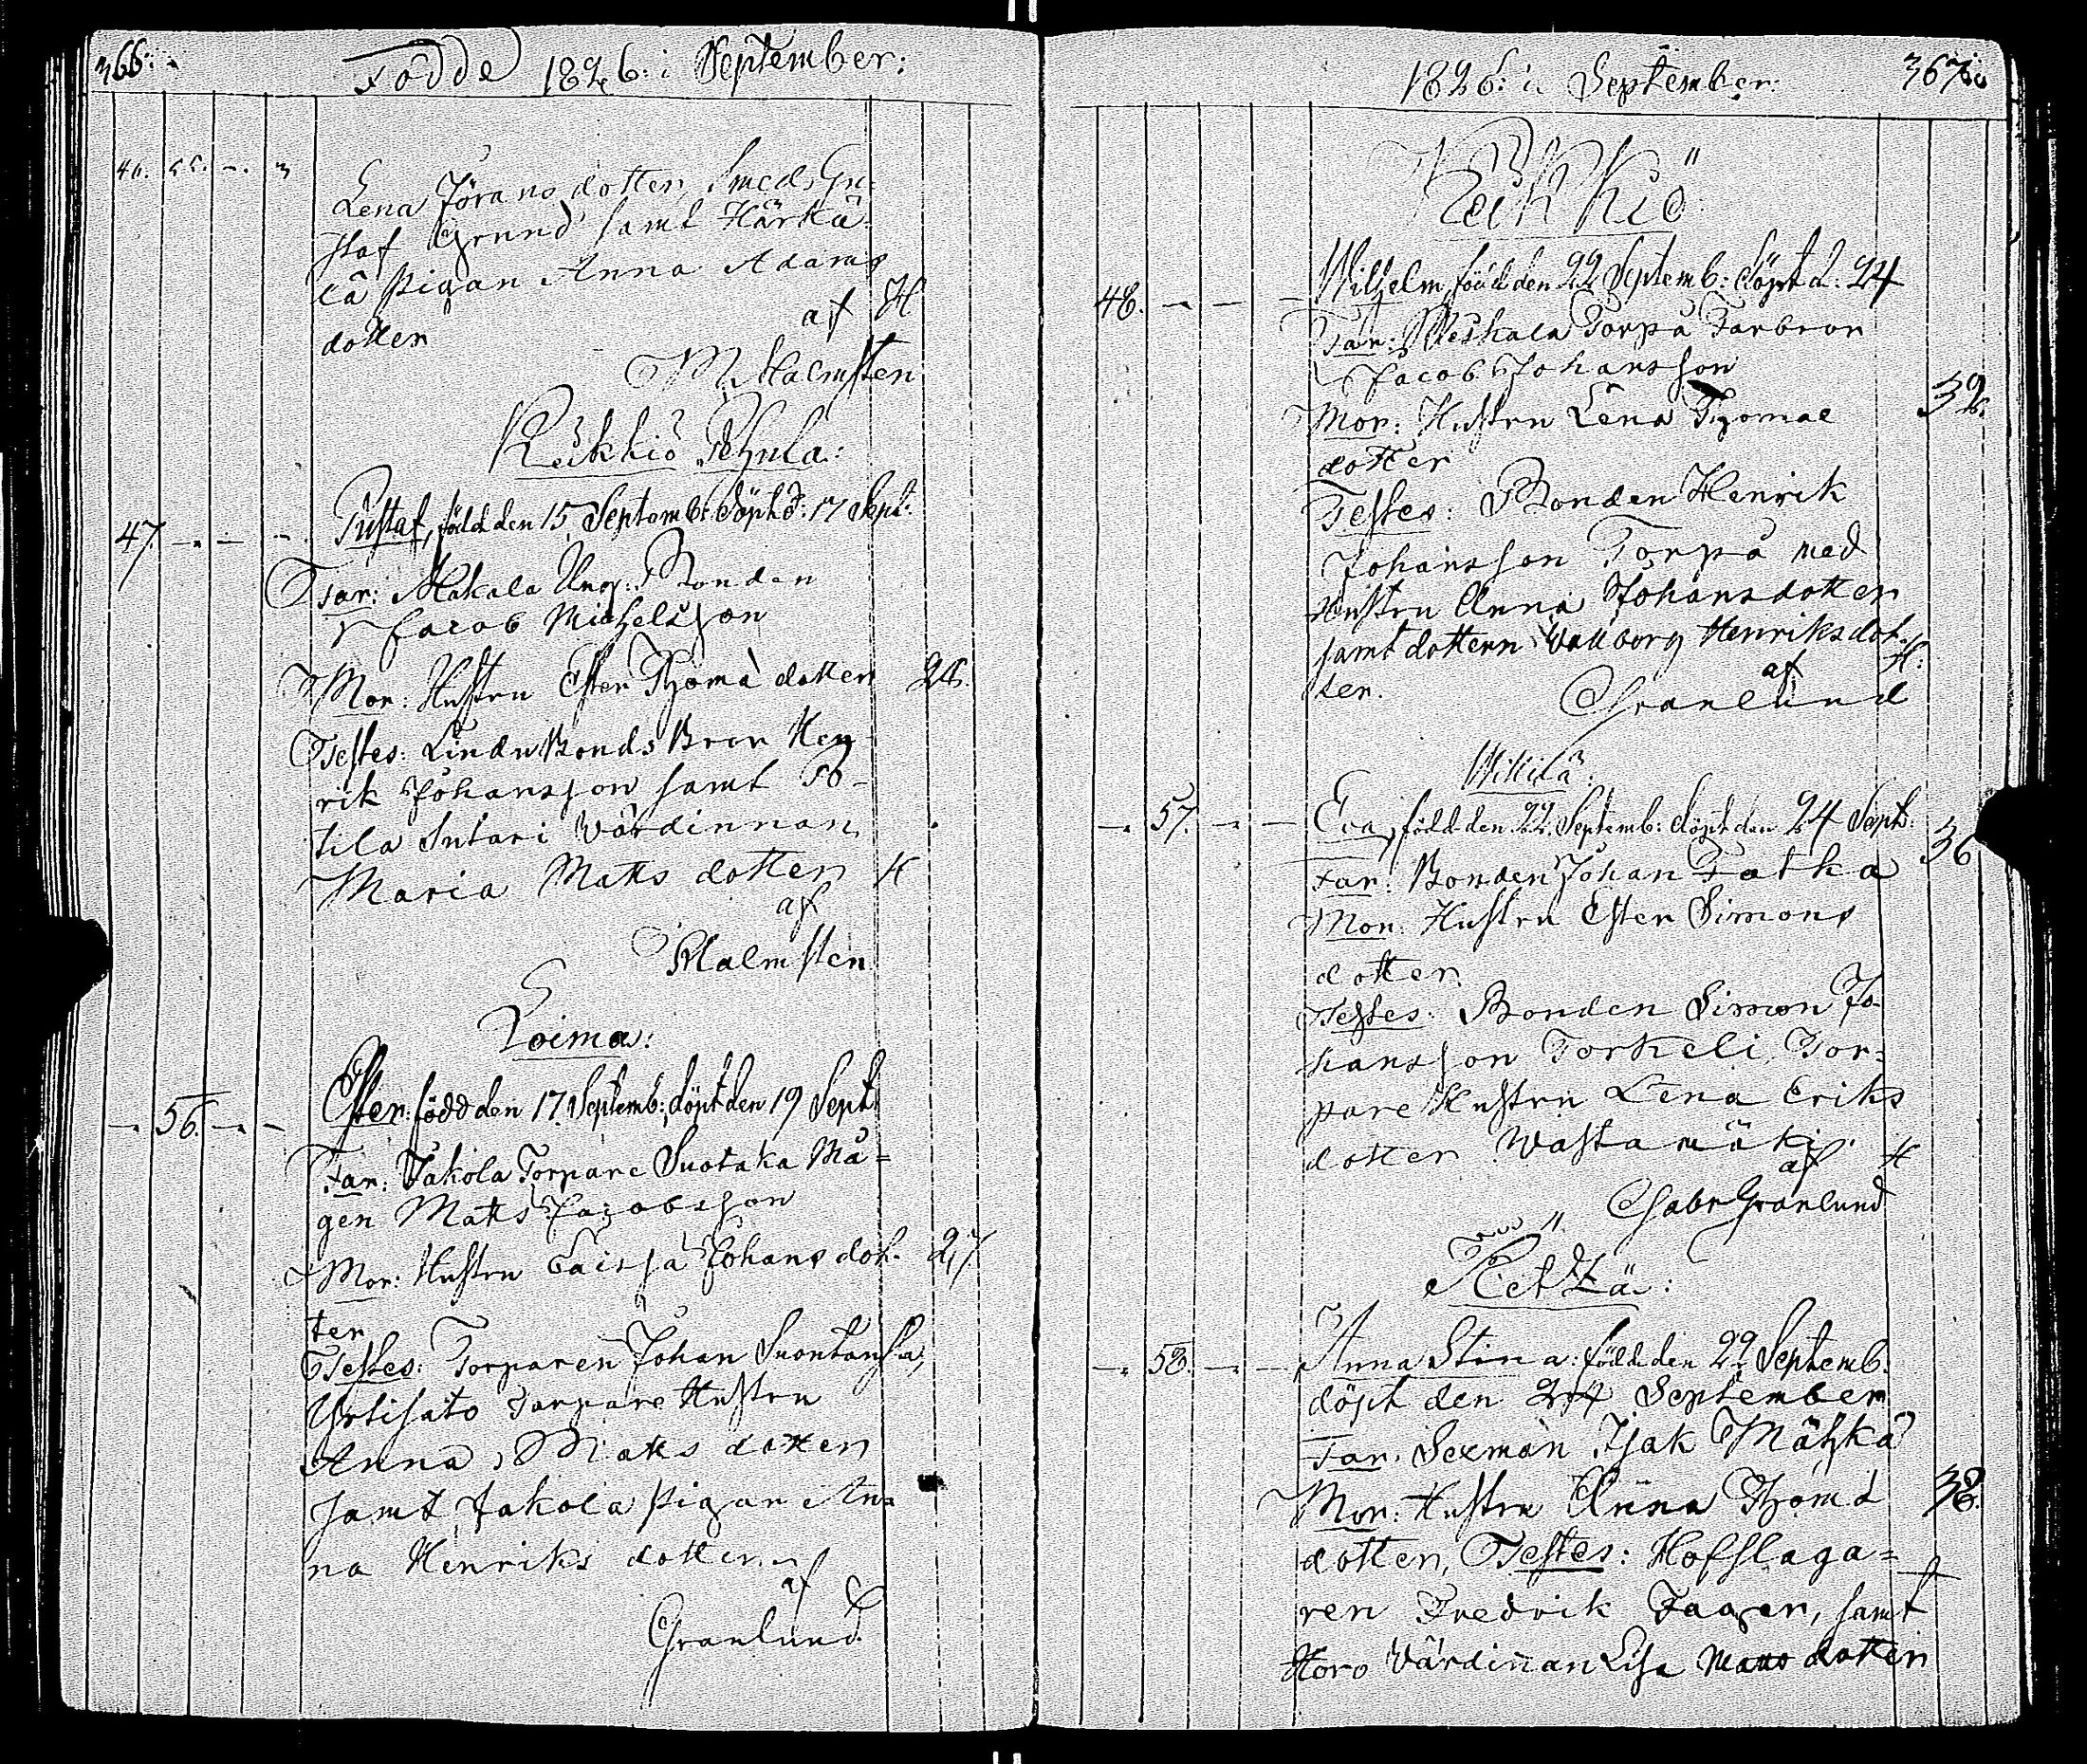 366.
Födde 1826: i September:
46. 55. -. 3
Lena Jörans dotter, Smeds Gu-
staf Grund samt Härkä
lä Pigan Anna Adams
dotter
af H
Malmsten
Keikkiö Kyula:
47. Gustaf, född den 15 Septemb: döpt d: 17 Sept:
Far: Makala Ung: Bonden
Jacob Michelsson
Mor: Hustru Ester Thomæ dotter 26.
Testes: Lindu Bonds Bror Hen
rik Johansson samt Po-
tila Sutari Wärdinnan
Maria Matts dotter H
af
Malmsten
Loima:
56. Ester: född den 17 Septemb: döpt den 19 Sept.
Far: Jakola Torpare Suotaka Må=
gen Matts Jacobsson
Mor: Hustru Caisa Johans dot- 27
ter
Testes: Torparen Johan Suontausta,
Yrtisato Torpare Hustru
Anna Matts dotter
samt Jakola Pigan An=
na Henriks dotter
af
Granlund.
1826: i September: 367.
Keikkiö
48. Wilhelm född den 22 Septemb: döpt d. 24
Far: Meskala Torpa Farbror
Jacob Johansson
Mor: Hustru Lena Thomae 32.
dotter
Testes: Bonden Henrik
Johansson Torpa med
Hustru Anna Johansdotter
samt dottern Wallborg Henriksdot-
ter. af H:
Granlund
Wikilä:
57. Eva, född den 22 Septemb: döpt den 24 Sept: 36
Far: Bonden Johan Fatka
Mor: Hustru Ester Simons
dotter
Testes: Bonden Simon Jo-
hansson Torkeli, Tor-
pare Hustru Lena Eriks
dotter Wastamäki.
af H
Gabr Granlund
58. Anna Stina: född den 22 Septemb.
döpt den 24 September
Far: Sexman Isak Mähkä
Mor: Hustru Anna Thomæ 38.
dotter, Testes: Hofslaga=
ren Fredrik Fager, samt
Horo Wärdinan Lisa Matts dotter